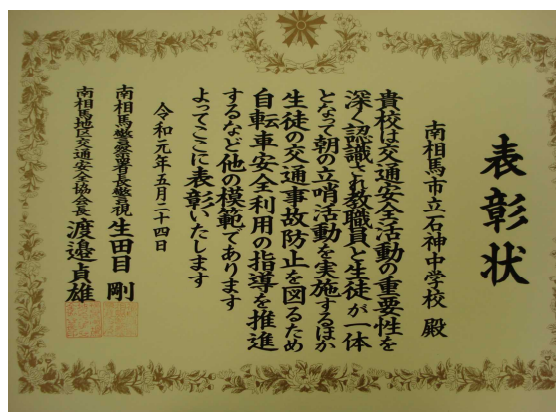 表彰状
南相馬市立石神中学校 殿
貴校は交通安全活動の重要性を
深く認識され教職員と生徒が一体
となって朝の立哨活動を実施するほか
生徒の交通事故防止を図るため
自転車安全利用の指導を推進
するなど他の模範であります
よってここに表彰いたします
令和元年五月二十四日
南相馬警察署長警視 生田目 剛
南相馬地区交通安全協会長 渡邉貞雄